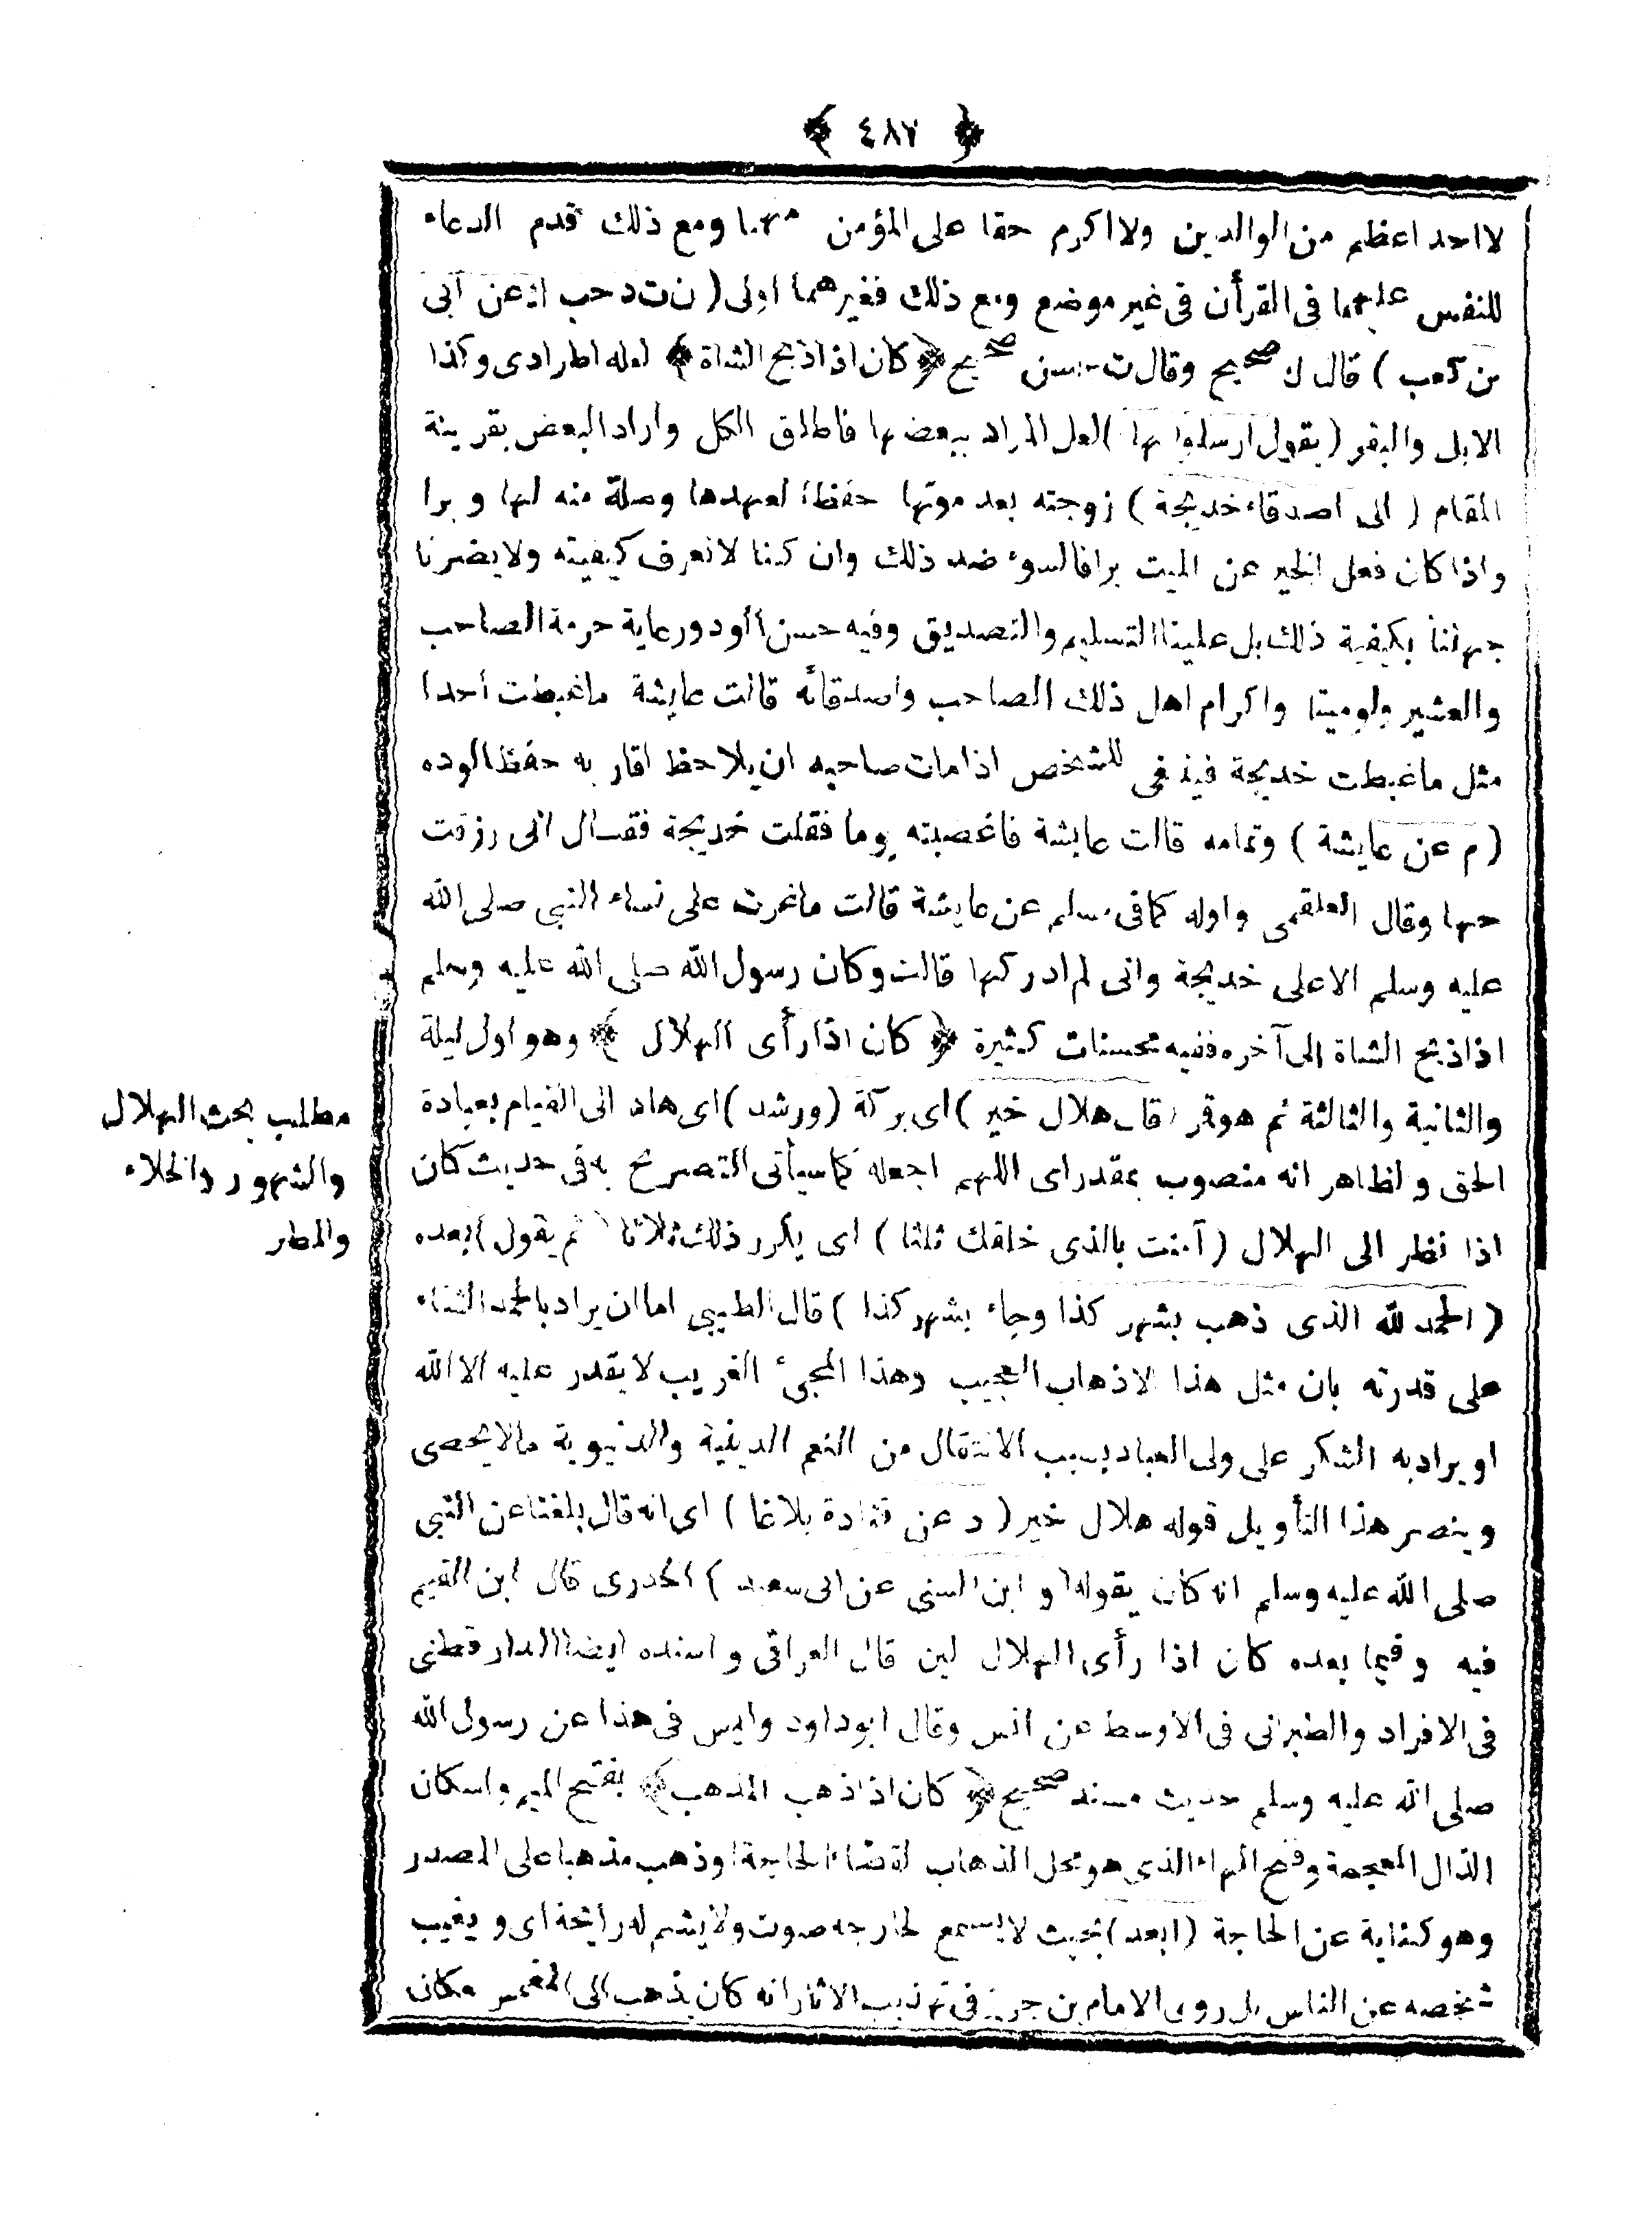 ﴿ ٤٨٧ ﴾
لا احد اعظم من الوالدين ولا اكرم حقا على المؤمن منهما ومع ذلك قدم الدعاء
للنفس عليهما فى القرأن فى غير موضع ومع ذلك فغيرهما اولى ( ن ت د حب ك عن ابى
بن كعب ) قال ك صحيح وقال ت حسن صحيح ﴿ كان اذا ذبح الشاة ﴾ لعله اطرادى وكذا
الابل والبقر ( يقول ارسلوا بها ) لعل المراد ببعضها فاطلق الكل واراد البعض بقرينة
المقام ( الى اصدقاء خديجة ) زوجته بعد موتها حفظا لعهدها وصلة منه لها وبرا
واذا كان فعل الخير عن الميت برا فالسوء ضد ذلك وان كنا لا نعرف كيفيته ولا يضرنا
جهلنا بكيفية ذلك بل علينا التسليم والتصديق وفيه حسن الود ورعاية حرمة الصاحب
والعشير ولو ميتا واكرام اهل ذلك الصاحب واصدقائه قالت عايشة ماغبطت احدا
مثل ماغبطت خديجة فينبغى للشخص اذا مات صاحبه ان يلاحظ اقاربه حفظا لوده
( م عن عايشة ) وتمامه قالت عايشة فاغضبته يوما فقلت خديجة فقال انى رزقت
حبها وقال العلقمى واوله كما فى مسلم عن عايشة قالت ماغرت على نساء النبى صلى الله
عليه وسلم الا على خديجة وانى لم ادركها قالت وكان رسول الله صلى الله عليه وسلم
اذا ذبح الشاة الى آخره ففيه محسنات كثيرة ﴿ كان اذا رأى الهلال ﴾ وهو اول ليلة
والثانية والثالثة ثم هو قمر ( قال هلال خير ) اى بركة ( ورشد ) اى هاد الى القيام بعبادة
الحق والظاهر انه منصوب بمقدر اى اللهم اجعله كما سيأتى التصريح به فى حديث كان
اذا نظر الى الهلال ( آمنت بالذى خلقك ثلثا ) اى يكرر ذلك ثلاثا ( ثم يقول ) بعده
( الحمد لله الذى ذهب بشهر كذا وجاء بشهر كذا ) قال الطيبى اما ان يراد بالحمد الثناء
على قدرته بان مثل هذا الاذهاب العجيب وهذا المجئ الغريب لا يقدر عليه الا الله
او يراد به الشكر على ولى العباد بسبب الانتقال من النعم الدينية والدنيوية مالا يحصى
وينصر هذا التأويل قوله هلال خير ( د عن قتادة بلاغا ) اى انه قال بلغنا عن النبى
صلى الله عليه وسلم انه كان يقوله ( و ابن السنى عن ابى سعيد ) الخدرى قال ابن القيم
فيه وفيما بعده كان اذا رأى الهلال لين قال العراقى واسنده ايضا الدار قطنى
فى الافراد والطبرانى فى الاوسط عن انس وقال ابوداود وليس فى هذا عن رسول الله
صلى الله عليه وسلم حديث مسند صحيح ﴿ كان اذا ذهب المذهب ﴾ بفتح الميم واسكان
الذال المعجمة وفتح الهاء الذى هو محل الذهاب لقضاء الحاجة او ذهب مذهبا على المصدر
وهو كناية عن الحاجة ( ابعد ) بحيث لا يسمع لخارجه صوت ولا يشم له رايحة اى ويغيب
شخصه عن الناس بل روى الامام بن جرير فى تهذيب الاثار انه كان يذهب الى المغمس مكان
مطلب بحث الهلال
والشهور والخلاء
والمطر